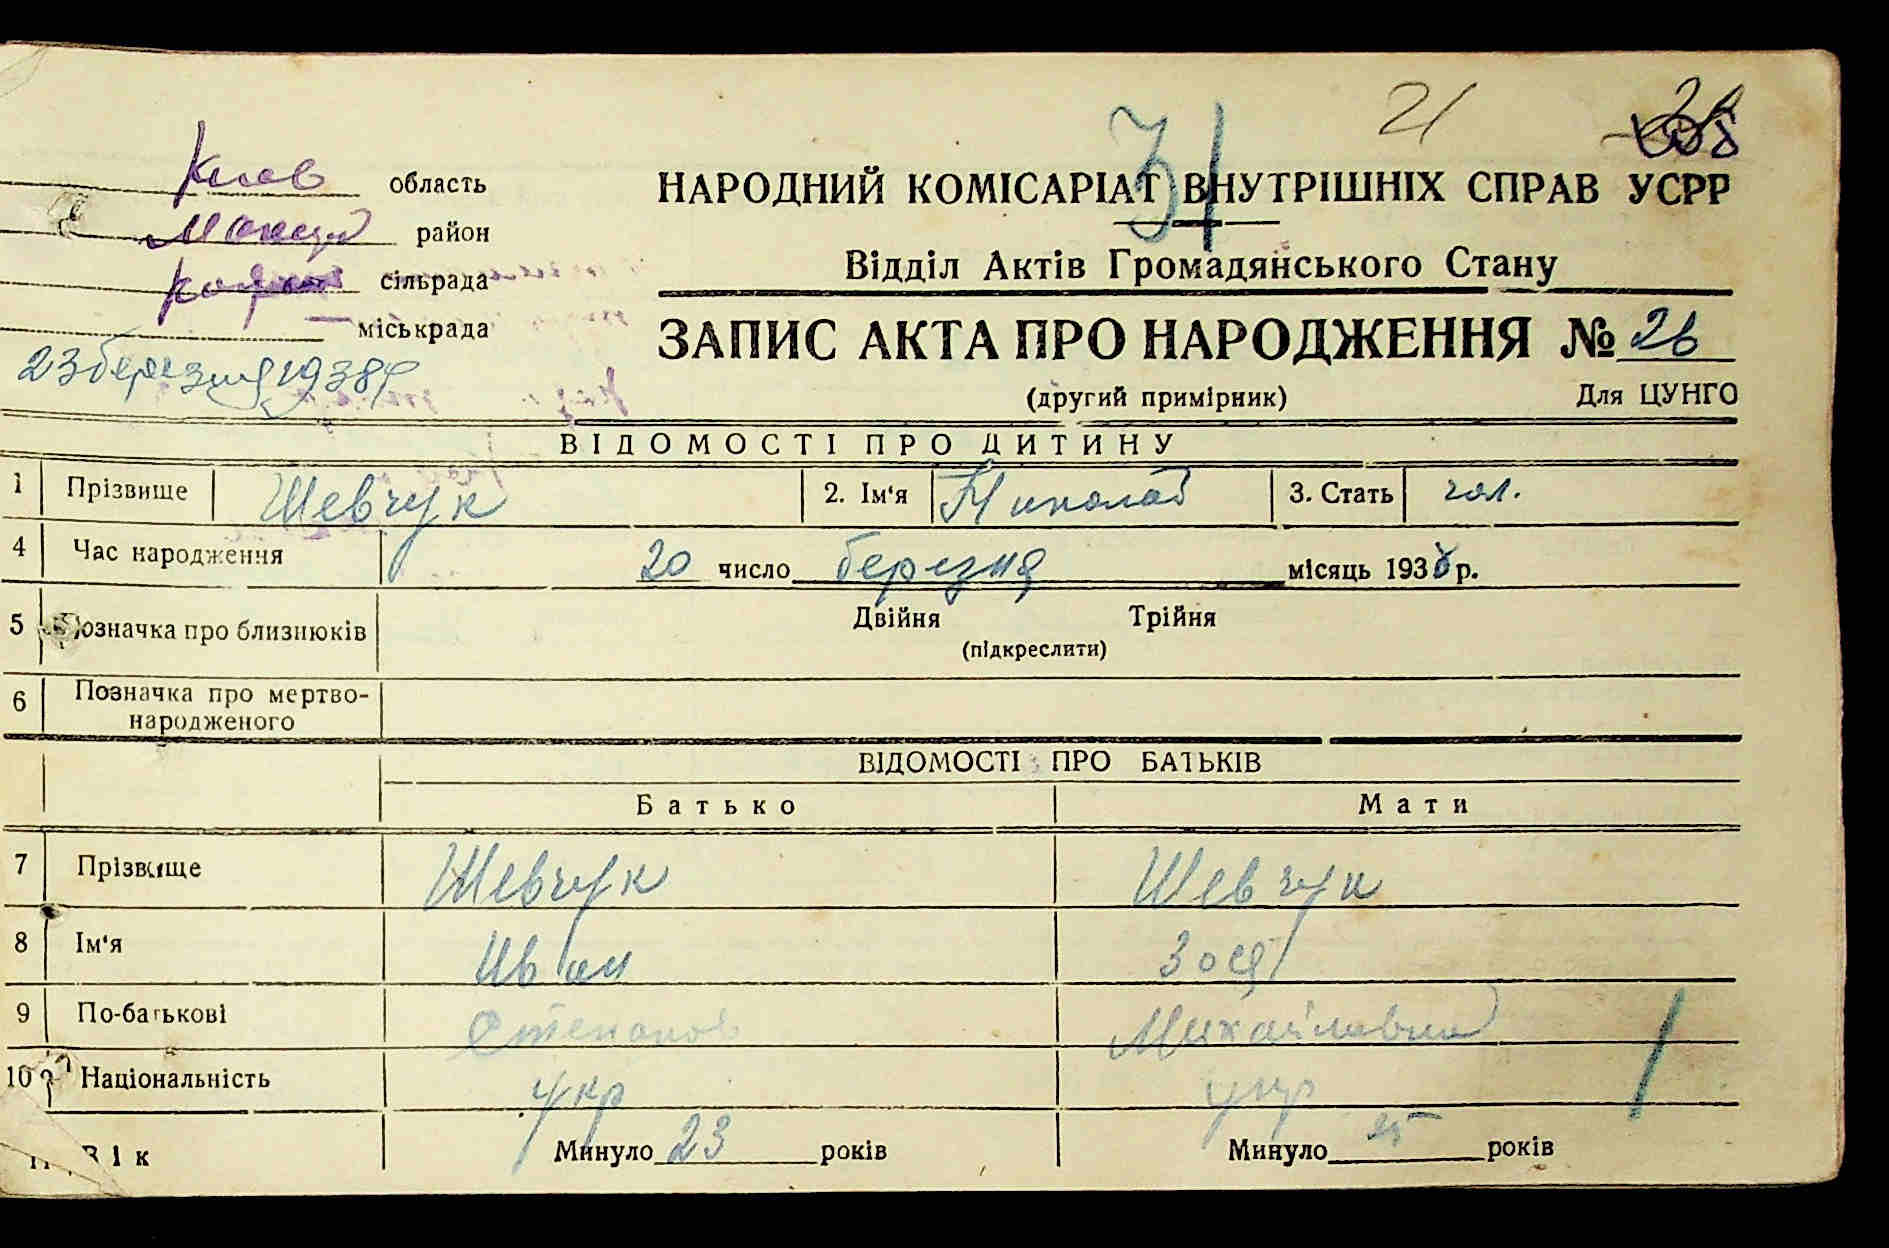 21
31
Киев область
район
сільрада
міськрада
23 березня 1938р
НАРОДНИЙ КОМІСАРІАТ ВНУТРІШНІХ СПРАВ УСРР
Відділ Актів Громадянського Стану
ЗАПИС АКТА ПРО НАРОДЖЕННЯ № 26
(другий примірник) Для ЦУНГО
ВІДОМОСТІ ПРО ДИТИНУ
1 Прізвище Шевчук 2. Ім'я Николай 3. Стать чол.
4 Час народження 20 число березня місяць 1938 р.
5 Позначка про близнюків Двійня Трійня
(підкреслити)
6 Позначка про мертво-
народженого
ВІДОМОСТІ ПРО БАТЬКІВ
Батько Мати
7 Прізвище Шевчук Шевчук
8 Ім'я Иван Зося
9 По-батькові Степанов Михайловна
10 Національність укр укр
Вік Минуло 23 років Минуло 25 років